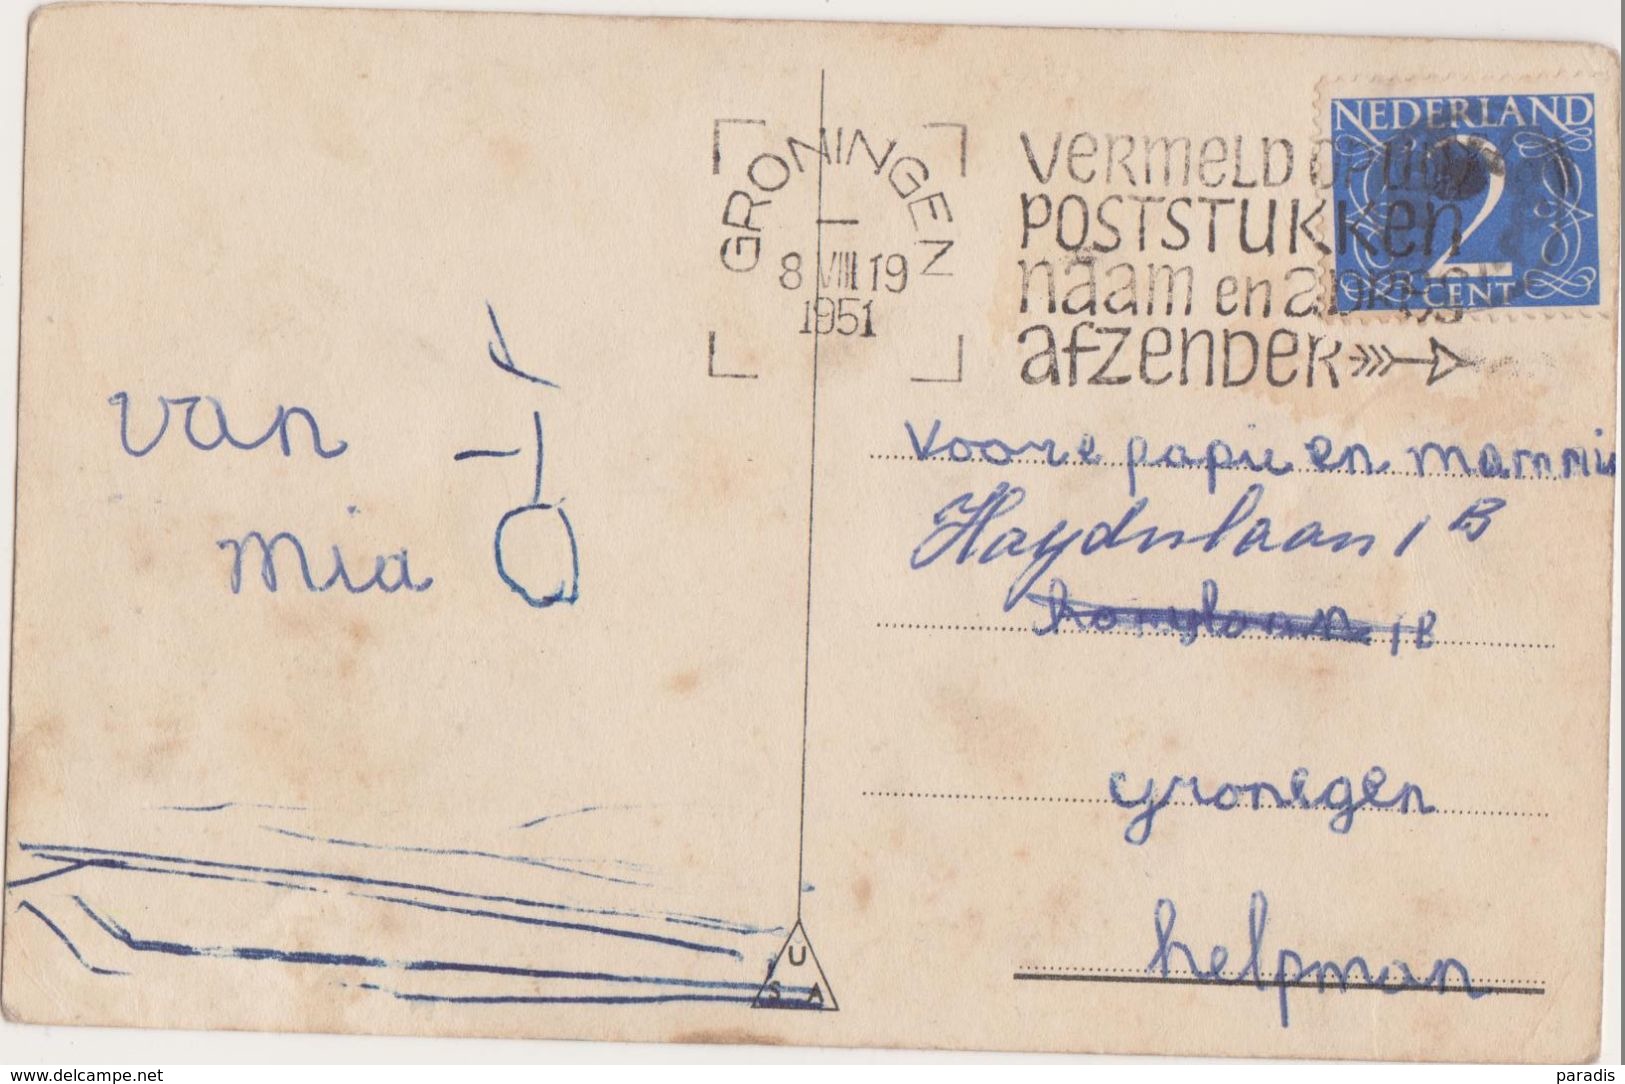 GRONINGEN
8 VIII 19
1951
VERMELD OP UW
POSTSTUKKEN
naam en adres
afzender
NEDERLAND
2
CENT
van
mia
voore papie en mammie
Haydnlaan 1 B
1B
gronegen
helpman
U
S A
www.delcampe.net
paradis